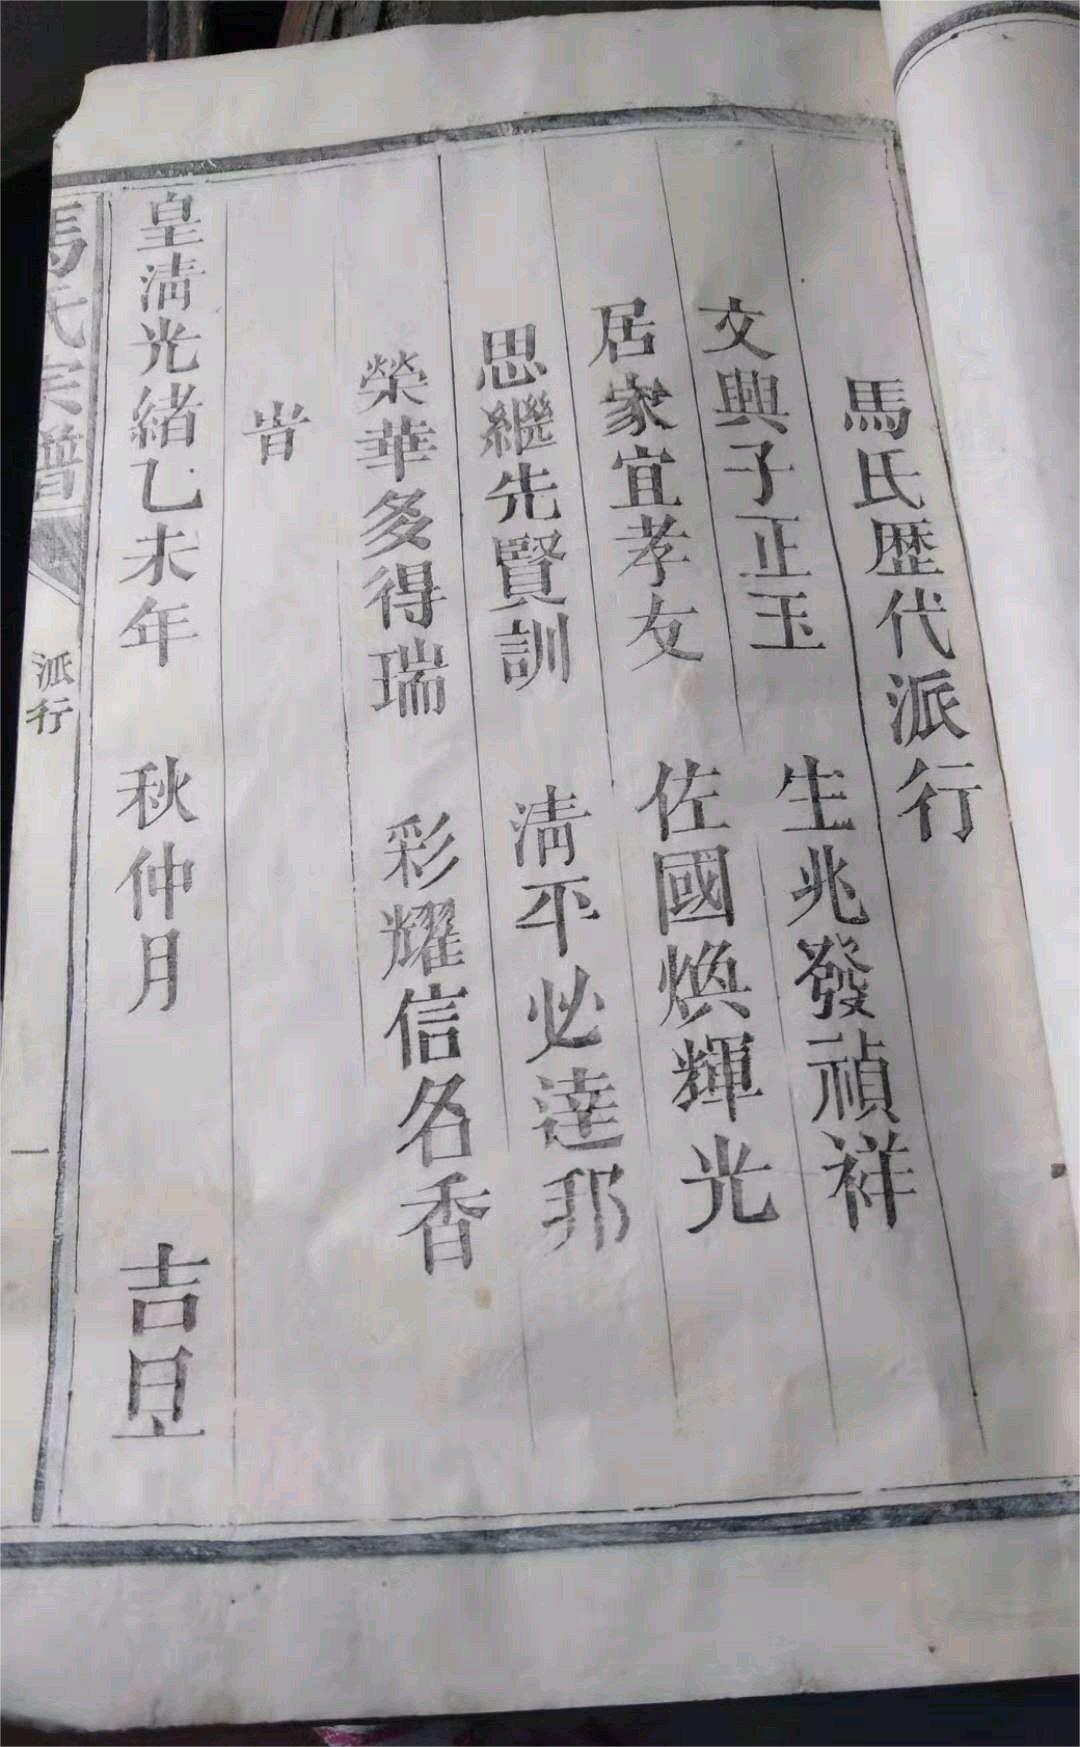 馬氏歴代派行
文興子正玉 生兆發禎祥
居家宜孝友 佐國煥輝光
思繼先賢訓 淸平必達邦
榮華多得瑞 彩耀信名香
旹
皇淸光緒乙未年 秋仲月 吉旦
馬氏宗譜 派行 一